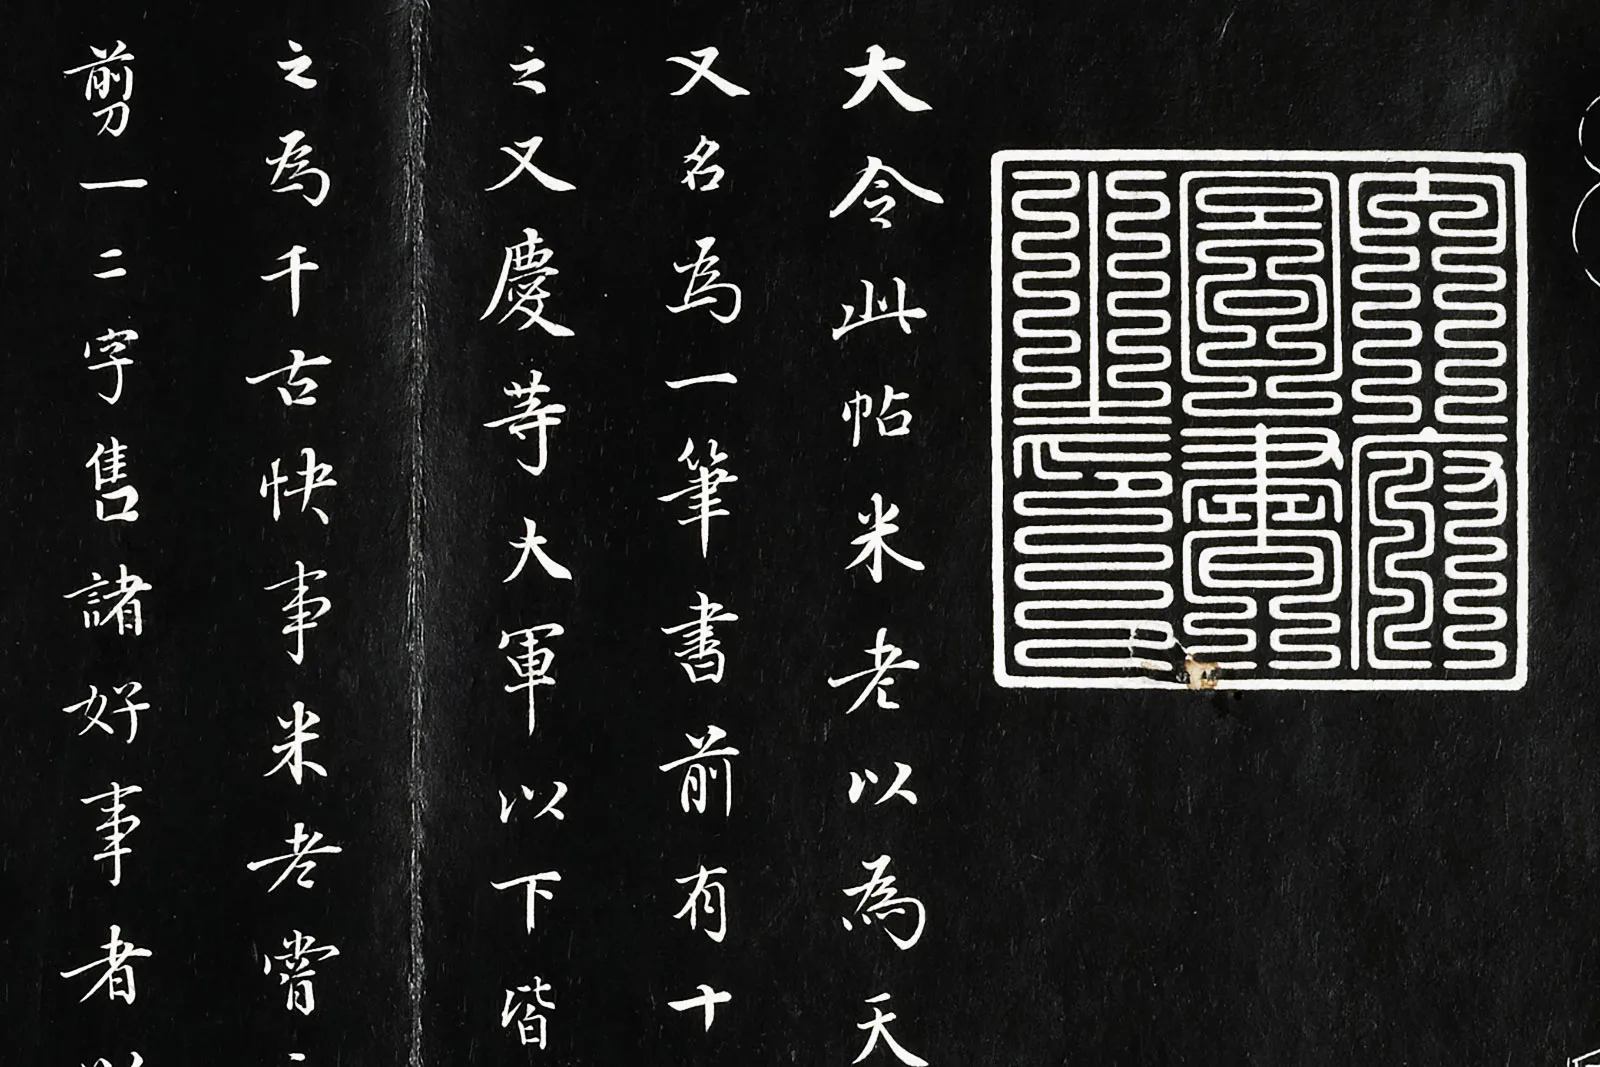 大令此帖米老以為天
又名為一筆書前有十
之又慶等大軍以下皆
之為千古快事米老嘗
剪一二字售諸好事者